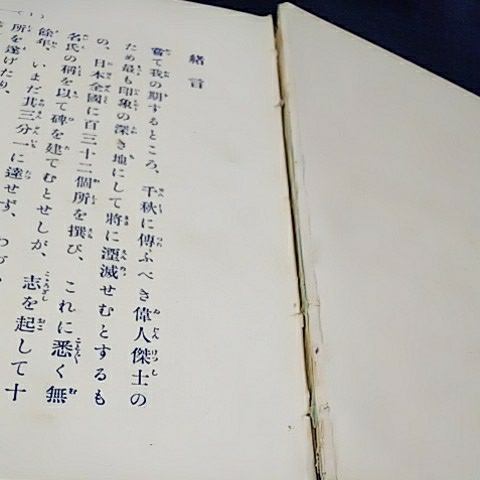 緖言
嘗て我の期するところ、千秋に傳ふべき偉人傑士の
ため最も印象の深き地にして將に湮滅せむとするも
の、日本全國に百三十二個所を撰び、これに悉く無
名氏の稱を以て碑を建てむとせしが、志を起して十
餘年、いまだ其三分一に達せず、わづ
所を遂げたり、
(1)